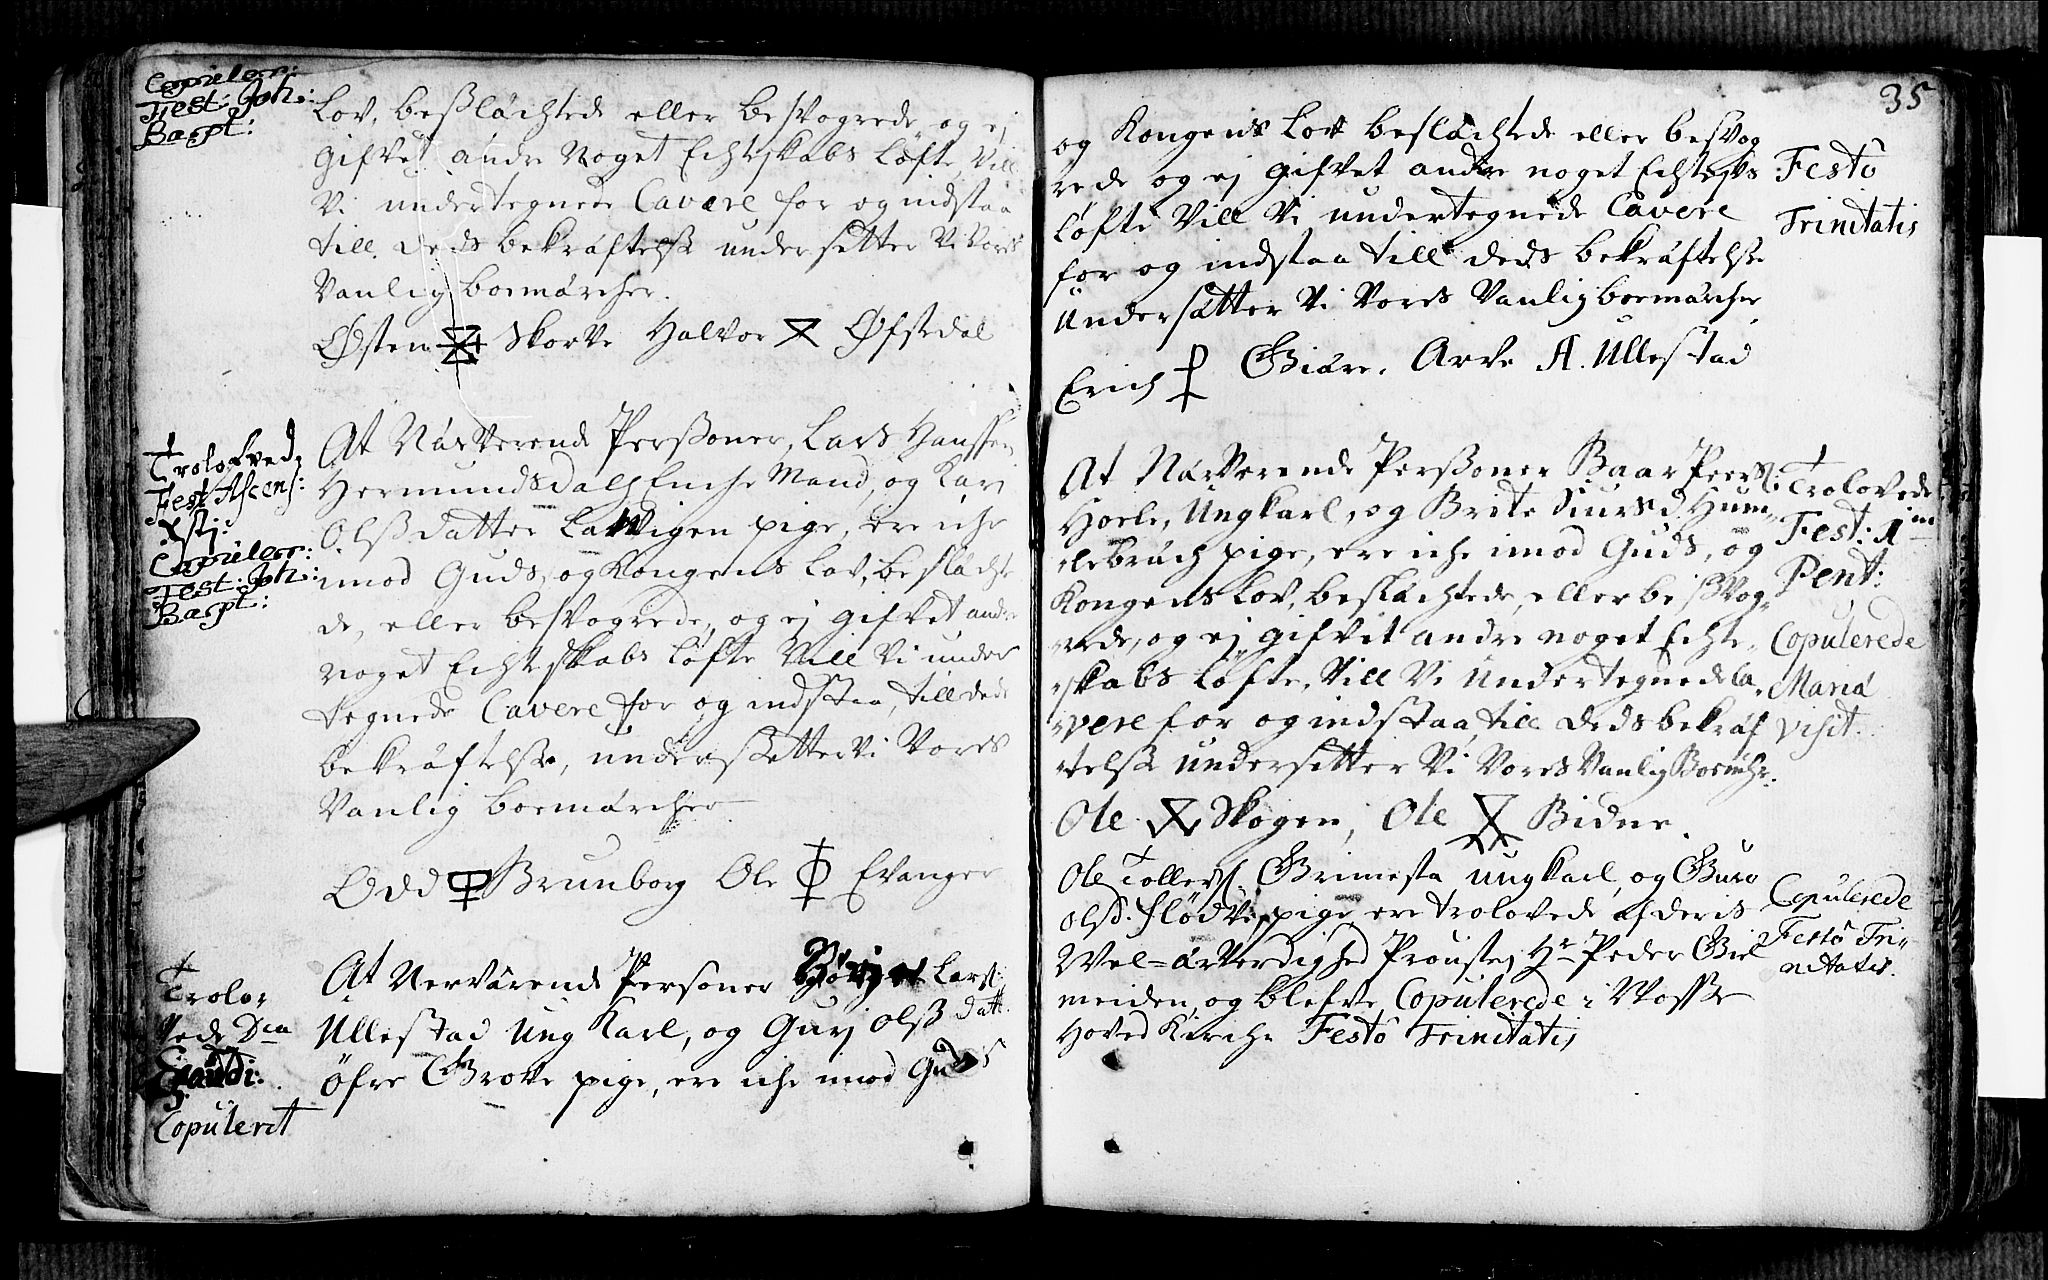 Copulerr:
Fest: Joh:
Bapt:
Lov, beßlächtede eller besvogrede, og ej
gifvet andre Noget Echteskabs Løfte, Vill
Vi undertegnede Cavere for og indstaa
till. Deds bekräftelsse undersetter Vi Vores
Vanlig boemärcher.
Østen Skorve Halvor Øfstedal
Trolofved,
Fest Ascens:
Xsti:
Copulerr:
Fest: Joh:
Bapt:
At Närverende Perßoner, Lars Hanssen
Hermundsdals Enche Mand, og Kari
Olßdatter Lavvigen pige, ere iche
imod Guds, og Kongens Lov, beslächte
de, eller besvogrede, og ej gifvet andre
noget Echteskabs Løfte Vill Vi under
tegnede Cavere for og indstaa, till deds
bekräftelsse, undersetter Vi Vores
Vanlig boemärcher
Odd Brunborg Ole Evanger
Trolo,
vede Dca
Exaudi:
Copuleret
At Nerværende Personer Lars:
Ullestad Ung Karl, og Gurj Olß Datt:
öfre Grove pige, ere iche imod Guds
35
og Kongens Lov beslächtede eller besvog
rede og ej gifvet andre noget Echteskbs
Løfte Vill Vi undertegnede Cavere
for og indstaa till deds bekräftelsse
Undersetter Vi Vores Vanlig boemärcher
Erich Giære. Arve A. Ullestad
Festô
Trinitatis
At Närverende Perßoner Baar Peerß:
Hoele, Ungkarl, og Brite Siursd. Hum,,
lebräch pige, ere iche imod Guds, og
Kongens Lov, beslächtede, eller besvog,,
rede, og ej gifvet andre noget Echte,,
skabs Løfte, Vill Vi Undertegnede Ca,,
vere for og indstaa, till Deds bekräf
telsse undersetter Vi Vores Vanlig Boemchr:
Ole Skogen, Ole Bidne.
Trolovede
Fest: 1m
Pent:
Copulerede
Mariä
visit.
Ole Tollerß Grimesta ungkarl, og Guro
Olsd: Flødve, pige, ere trolovede af deris
Wel=ärverdighed Prousten Hr Peder Giel
meiden, og blefve Copulerede i Wosse
Hoved Kirche Festô Trinitatis
Copulerede
Festô Tri,,
nitatis.